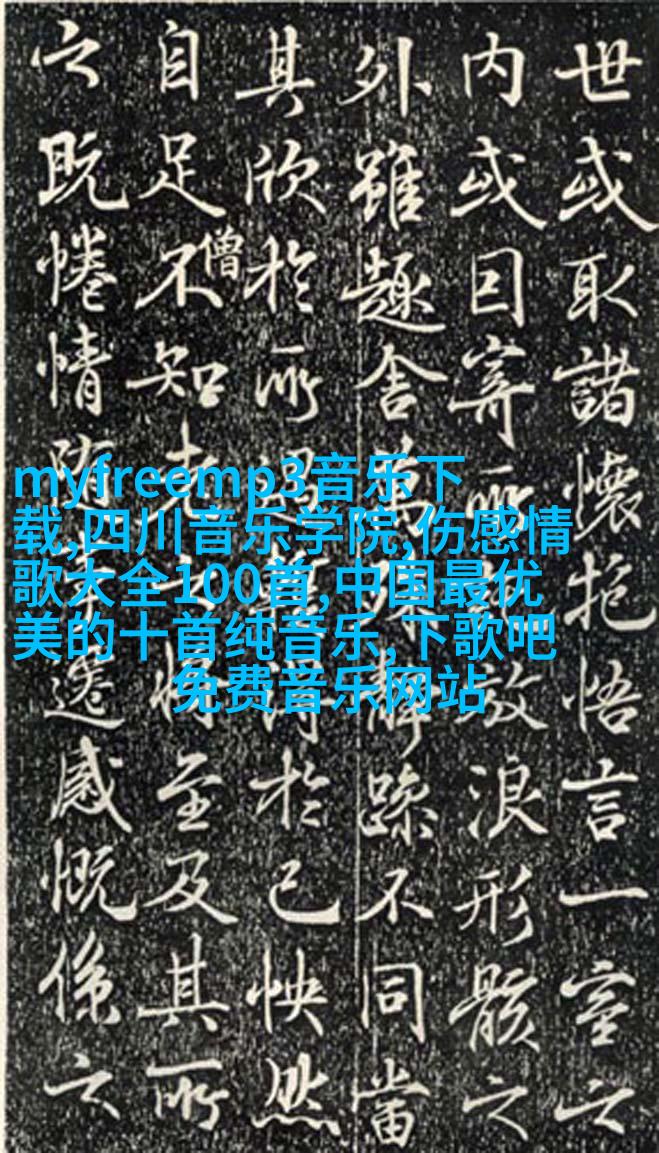 世或取諸懷抱悟言一室之
内或因寄所託放浪形骸之
外雖趣舍萬殊静躁不同當
其欣於所遇暫得於己怏然
自足不知老之將至及其所
僧
之既惓情隨事遷感慨係之
myfreemp3音乐下
载,四川音乐学院,伤感情
歌大全100首,中国最优
美的十首纯音乐,下歌吧
免费音乐网站